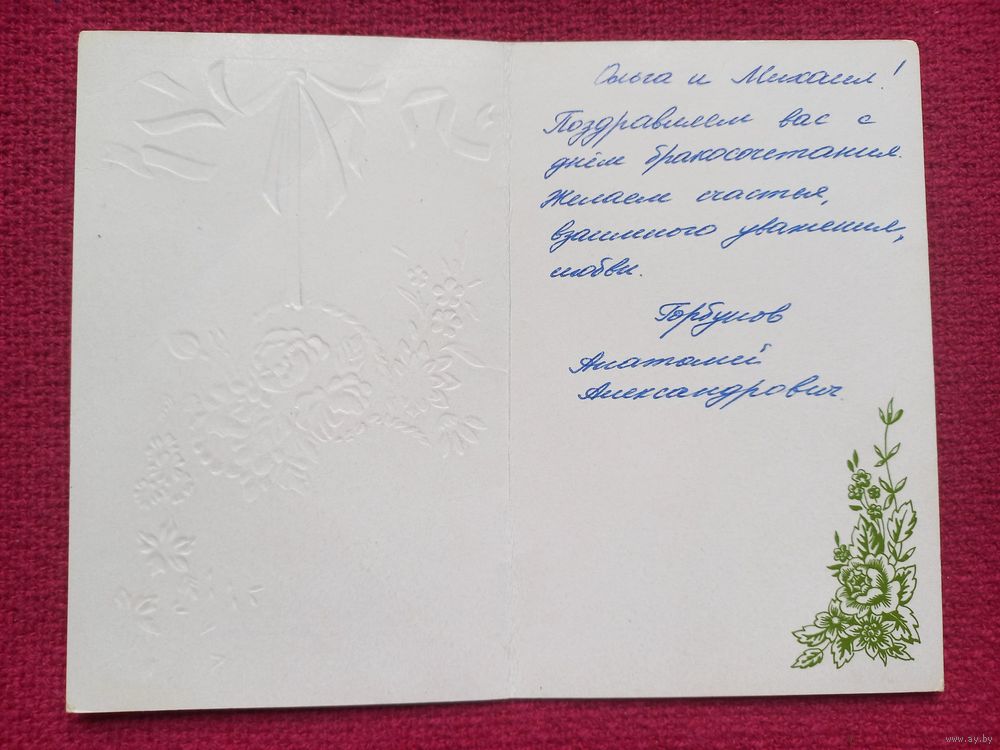 Ольга и Михаил!
Поздравляем вас с
днём бракосочетания.
Желаем счастья,
взаимного уважения,
любви.
Горбунов
Анатолий
Александрович.
www.ay.by